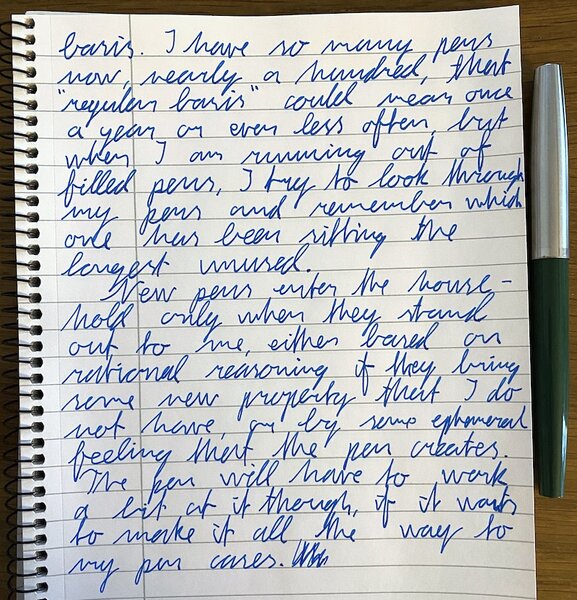 basis. I have so many pens
now, nearly a hundred, that
"regular basis" could mean once
a year or even less often, but
when I am running out of
filled pens, I try to look through
my pens and remember which
one has been sitting the
longest unused.
New pens enter the house-
hold only when they stand
out to me, either based on
rational reasoning if they bring
some new property that I do
not have, or by some ephemeral
feeling that the pen creates.
The pen will have to work
a bit at it though, if it wants
to make it all the way to
my pen cases.